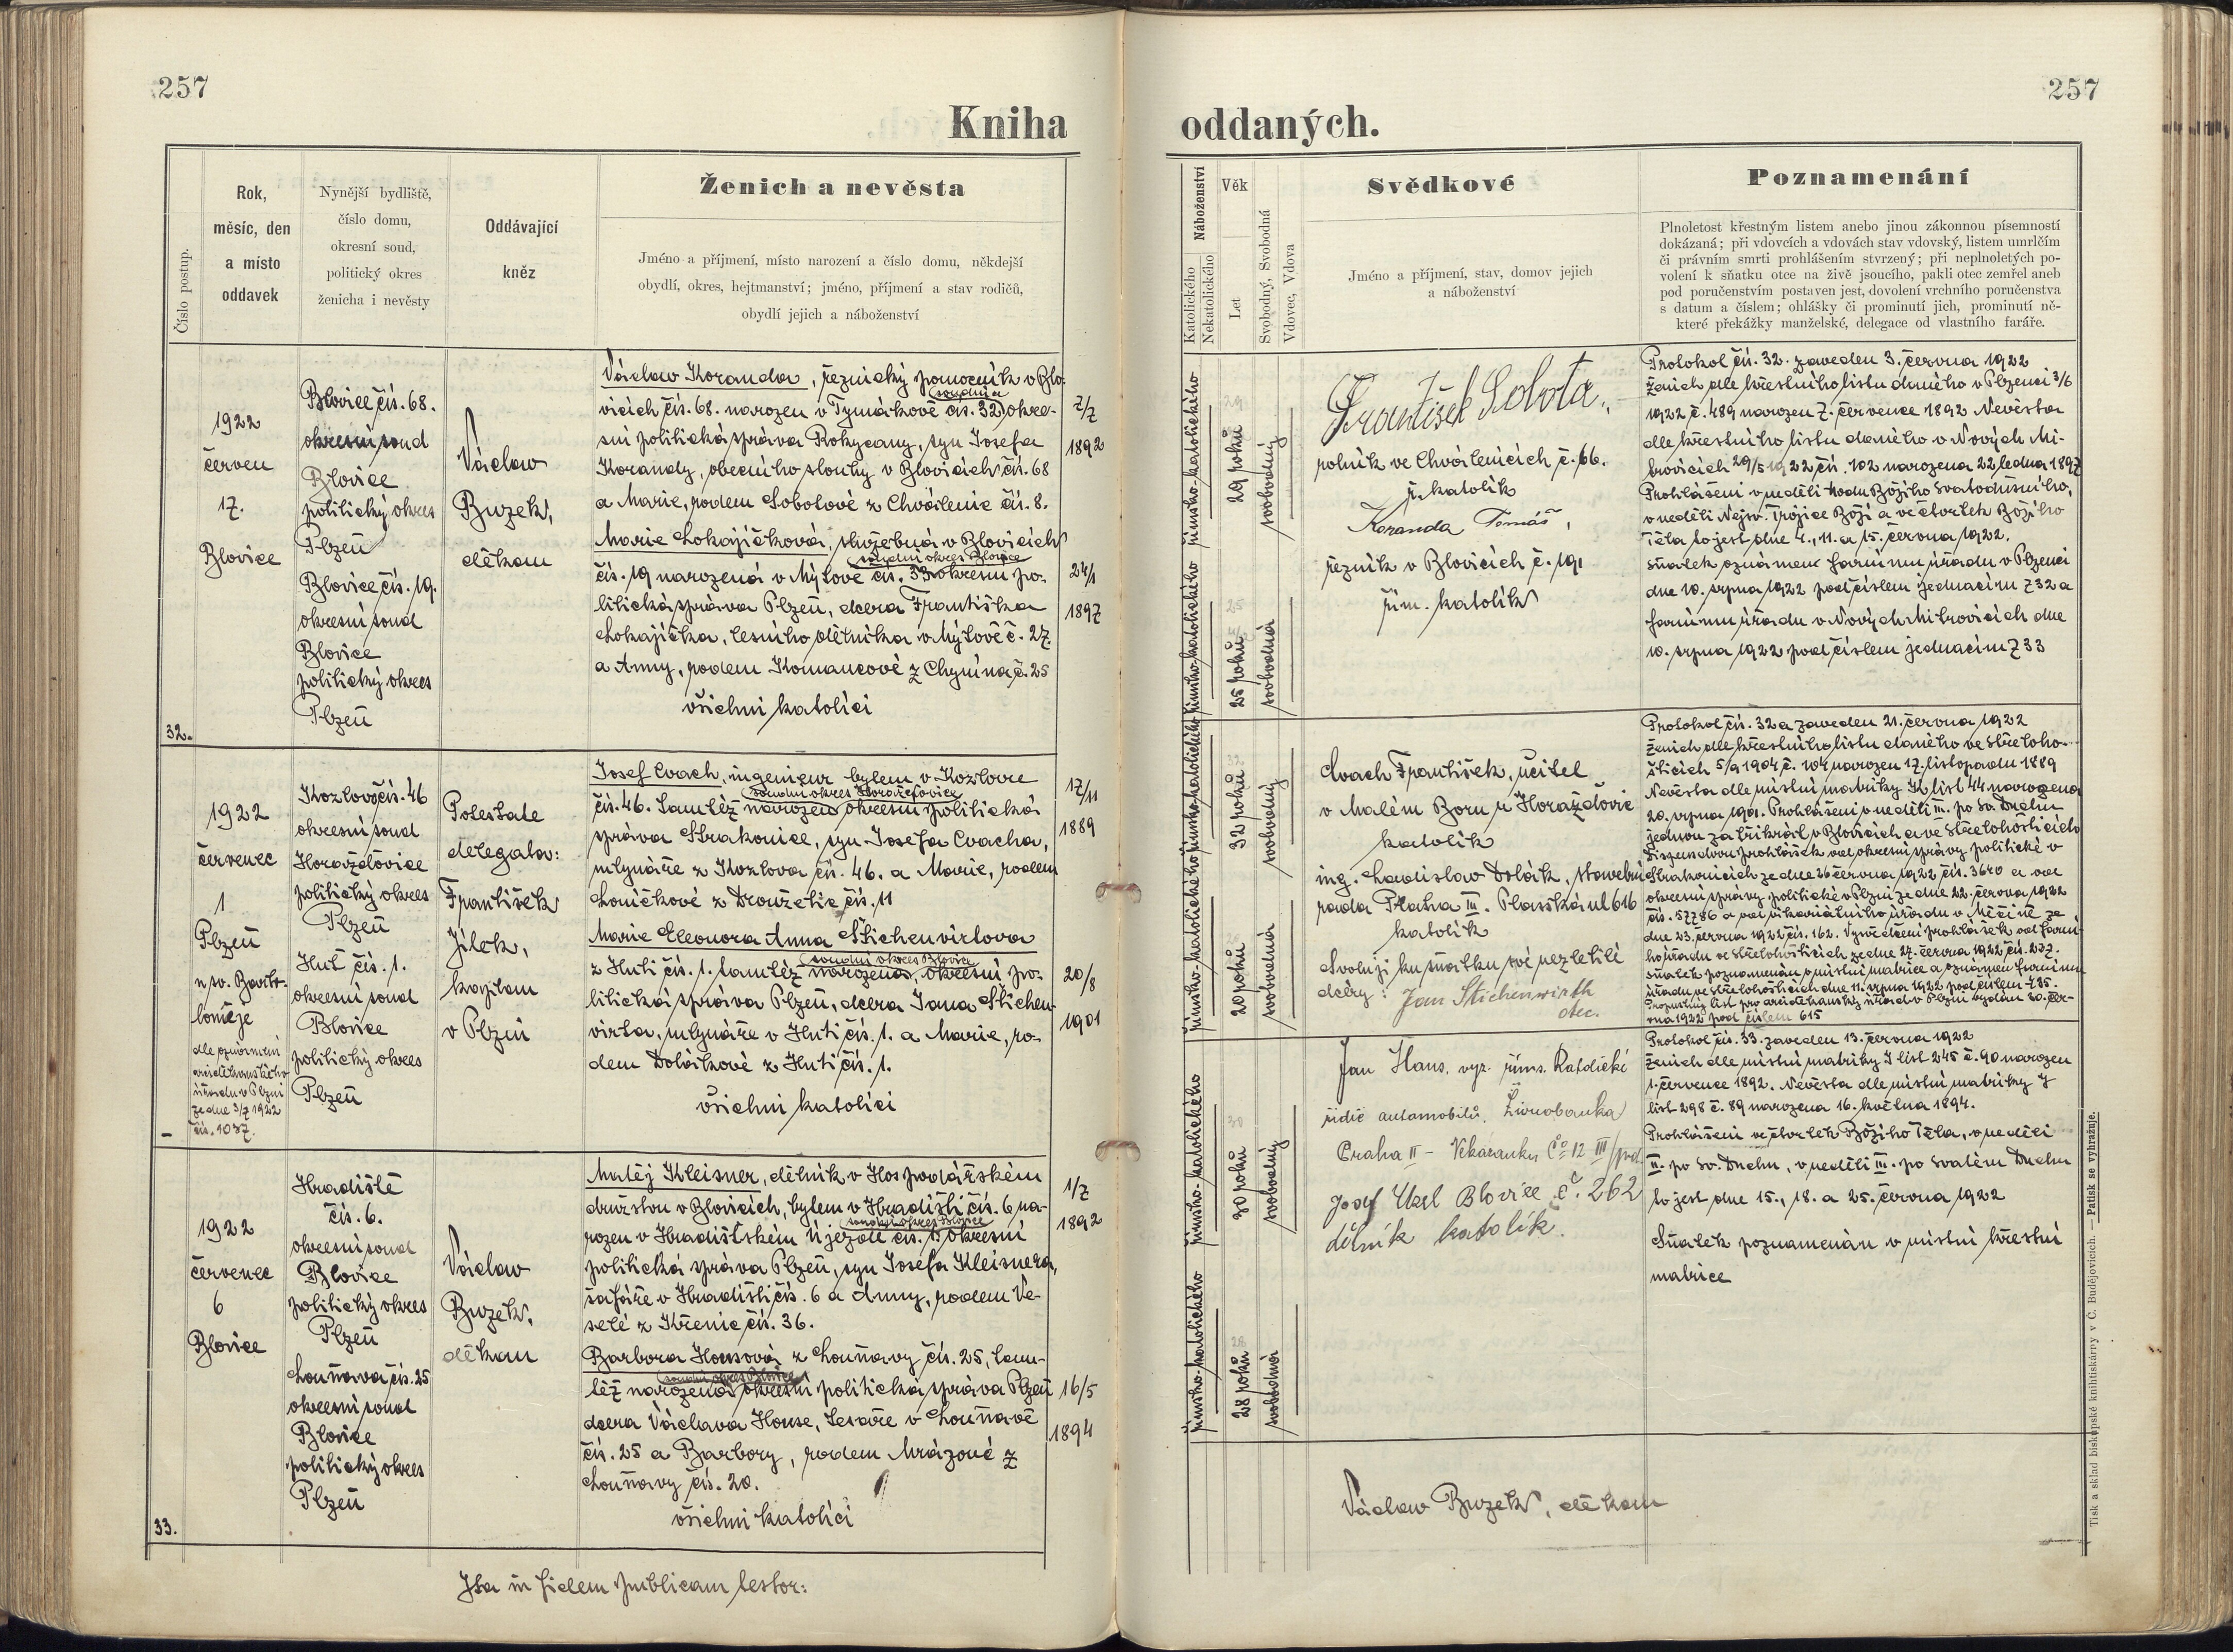 257
Kniha
Číslo postup.
Rok,
měsíc, den
a místo
oddavek
Nynější bydliště,
číslo domu,
okresní soud,
politický okres
ženicha i nevěsty
Oddávající
kněz
Ženich a nevěsta
Jméno a příjmení, místo narození a číslo domu, někdejší
obydlí, okres, hejtmanství; jméno, příjmení a stav rodičů,
obydlí jejich a náboženství
32.
1922
červen
17.
Blovice
Blovice čís. 68.
okresní soud
Blovice
politický okres
Plzeň
Blovice čís. 19.
okresní soud
Blovice
politický okres
Plzeň
Václav
Buzek,
děkan
Václav Koranda, řeznický pomocník v Blo-
vicích čís. 68. narozen v Tymákově čís. 32, okre-
sní politická správa Rokycany, syn Josefa
Korandy, obecního sluhy v Blovicích čís. 68
a Marie, rodem Sobotové z Chválenic čís. 8.
Marie Lokajíčková, služebná v Blovicích
soudní okres Blovice
čís. 19 narozená v Mýtově čís. 33 okresní po-
litická správa Plzeň, dcera Františka
Lokajíčka, lesního dělníka v Mýtově č. 27
a Anny, rodem Komancové z Chynína č. 25
všichni katolíci
7/7
1892
24/1
1897
1922
červenec
1
Plzeň
u sv. Barto-
loměje
dle oznámení
arciděkanského
úřadu v Plzni
ze dne 3/7 1922
čís. 1037.
Kozlov čís. 46
okresní soud
Horažďovice
politický okres
Plzeň
Huť čís. 1.
okresní soud
Blovice
politický okres
Plzeň
Potestate
delegatov:
František
Jílek,
kaplan
v Plzni
Josef Cvach, ingenieur bytem v Kozlovre
soudní okres Horažďovice
čís. 46. tamtéž narozen okresní politická
správa Strakonice, syn Josefa Cvacha,
mlynáře z Kozlova čís. 46. a Marie, rodem
Loničkové z Droužetic čís. 11
Marie Eleonora Anna Stichenwirtova
soudní okres Blovice
z Huti čís. 1. tamtéž narozena, okresní po-
litická správa Plzeň, dcera Jana Stichen-
virta, mlynáře v Huti čís. 1. a Marie, ro-
dem Dolákové z Huti čís. 1.
všichni katolíci
17/11
1889
20/8
1901
33.
1922
červenec
6
Blovice
Hradiště
čís. 6.
okresní soud
Blovice
politický okres
Plzeň
Louňava čís. 25
okresní soud
Blovice
politický okres
Plzeň
Václav
Buzek,
děkan
Matěj Kleisner, dělník v Hospodářském
družstvu v Blovicích, bytem v Hradišti čís. 6, na-
soudní okres Blovice
rozen v Hradišťském Újezdě čís. okresní
politická správa Plzeň, syn Josefa Kleisnera,
šafáře v Hradišti čís. 6 a Anny, rodem Ve-
selé z Křenic čís. 36.
Barbora Housová z Louňavy čís. 25, tam-
soudní okres Blovice
též narozena okresní politická správa Plzeň
dcera Václava House, tesaře v Louňavě
čís. 25 a Barbory, rodem Mrázové z
Louňavy čís. 20.
všichni katolíci
1/7
1892
16/5
1894
Ita in fidem publicam testor:
257
oddaných.
Náboženství
Katolického
Nekatolického
Věk
Let
Svobodný, Svobodná
Vdovec, Vdova
Svědkové
Jméno a příjmení, stav, domov jejich
a náboženství
Poznamenání
Plnoletost křestným listem anebo jinou zákonnou písemností
dokázaná; při vdovcích a vdovách stav vdovský, listem umrlčím
či právním smrti prohlášením stvrzený; při neplnoletých po-
volení k sňatku otce na živě jsoucího, pakli otec zemřel aneb
pod poručenstvím postaven jest, dovolení vrchního poručenstva
s datum a číslem; ohlášky či prominutí jich, prominutí ně-
které překážky manželské, delegace od vlastního faráře.
římsko-katolického
29 roků
svobodný
římsko-katolického
25 roků
svobodná
František Sobota,
rolník ve Chválenicích č. 66.
ř. katolík
Koranda Tomáš,
řezník v Blovicích č. 191
řím. katolík
Protokol čís. 32. zaveden 3. června 1922
Ženich dle křestního listu daného v Plzenci 3/6
1922 č. 489 narozen 7. července 1892 Nevěsta
dle křestního listu daného v Nových Mi-
trovicích 29/5 1922 čís. 102 narozena 22 ledna 1897
Prohlášení v neděli Hodu Božího Svatodušního,
v neděli Nejsv. Trojice Boží a ve čtvrtek Božího
Těla to jest dne 4., 11. a 15. června 1922.
sňatek oznámen farnímu úřadu v Plzenci
dne 10. srpna 1922 pod číslem jednacím 732 a
farnímu úřadu v Nových Mitrovicích dne
10. srpna 1922 pod číslem jednacím 733
římsko-katolického
32 roků
svobodný
římsko-katolického
20 roků
svobodná
Cvach František, učitel
v Malém Boru u Horažďovic
katolík
ing. Ladislav Dolák, stavební
rada Praha III. Plasská ul 616
katolík
Svoluji ku sňatku své nezletilé
dcery: Jan Stichenwirth
otec.
Protokol čís. 32a zaveden 21. června 1922
Ženich dle křestního listu daného ve Střeloho-
šticích 5/9 1904 č. 104 narozen 17. listopadu 1889
Nevěsta dle místní matriky K list 44 narozena
20. srpna 1901. Prohlášeni v neděli III. po Sv. Duchu
jednou za třikrát v Blovicích a ve Střelohošticích
Dispens dvou prohlášek od okresní správy politické v
Strakonicích ze dne 26 června 1922 čís. 3640 a od
okresní správy politické v Plzni ze dne 22. června 1922
čís. 57786 a od vikariátního úřadu v Měčíně ze
dne 23. června 1922 čís. 162. Vysvědčení prohlášek od farní-
ho úřadu ve Střelohošticích ze dne 27. června 1922 čís. 237.
sňatek poznamenán v místní matrice a oznámen farnímu
úřadu ve Střelohošticích dne 11. srpna 1922 pod číslem 735.
Propustný list pro arciděkanský úřad v Plzni vydán 30. čer-
vna 1922 pod číslem 615
římsko-katolického
30 roků
svobodný
římsko-katolického
28 roků
svobodná
Jan Hans, vyz. říms. Katolické
řidič automobilů, Živnobanka
Praha II - Čo 12 III/
Josef Uxl Blovice č. 262
dělník katolík.
Protokol čís. 33. zaveden 13. června 1922
Ženich dle místní matriky J list 245 č. 90 narozen
1. července 1892. Nevěsta dle místní matriky J
list 298 č. 89 narozena 16. května 1894.
Prohlášeni ve čtvrtek Božího Těla, v neděli
II. po Sv. Duchu, v neděli III. po Svatém Duchu
to jest dne 15., 18. a 25. června 1922
Sňatek poznamenán v místní křestní
matrice
Václav Buzek, děkan
Tisk a sklad biskupské knihtiskárny v Č. Budějovicích. — Patisk se vyhražuje.